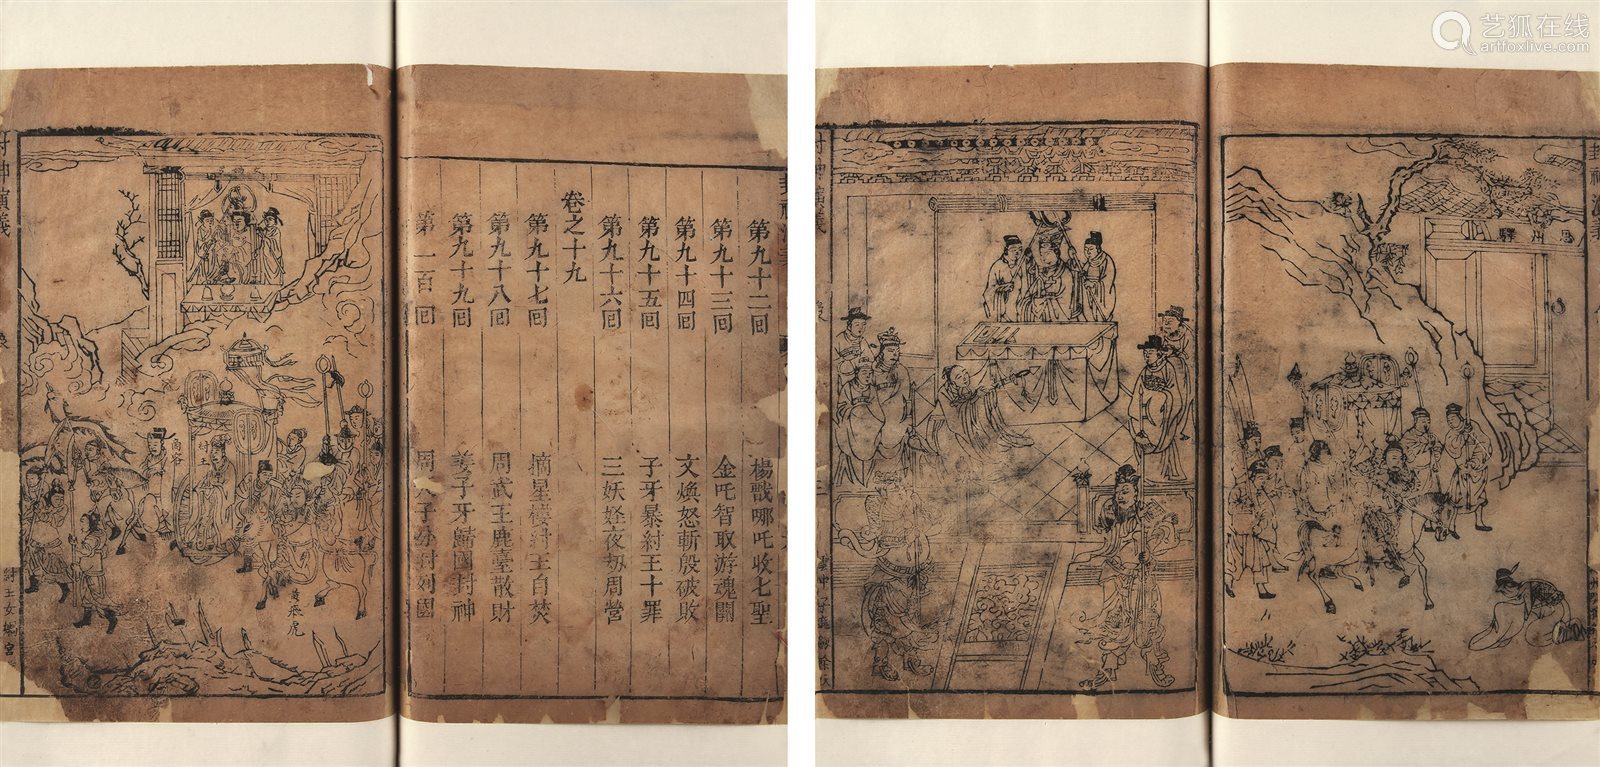 艺狐在线
artfoxlive.com
第九十二回 楊戩哪吒收七聖
第九十三回 金吒智取游魂關
第九十四回 文煥怒斬殷破敗
第九十五回 子牙暴紂王十罪
第九十六回 三妖姪夜刼周營
卷之十九
第九十七回 摘星樓紂王自焚
第九十八回 周武王鹿臺散財
第九十九回 姜子牙歸國封神
第一百回 周天子分封列國
封神演義
商容
紂王
黃飛虎
紂王女媧宮
封神演義
封神演義
恩州驛